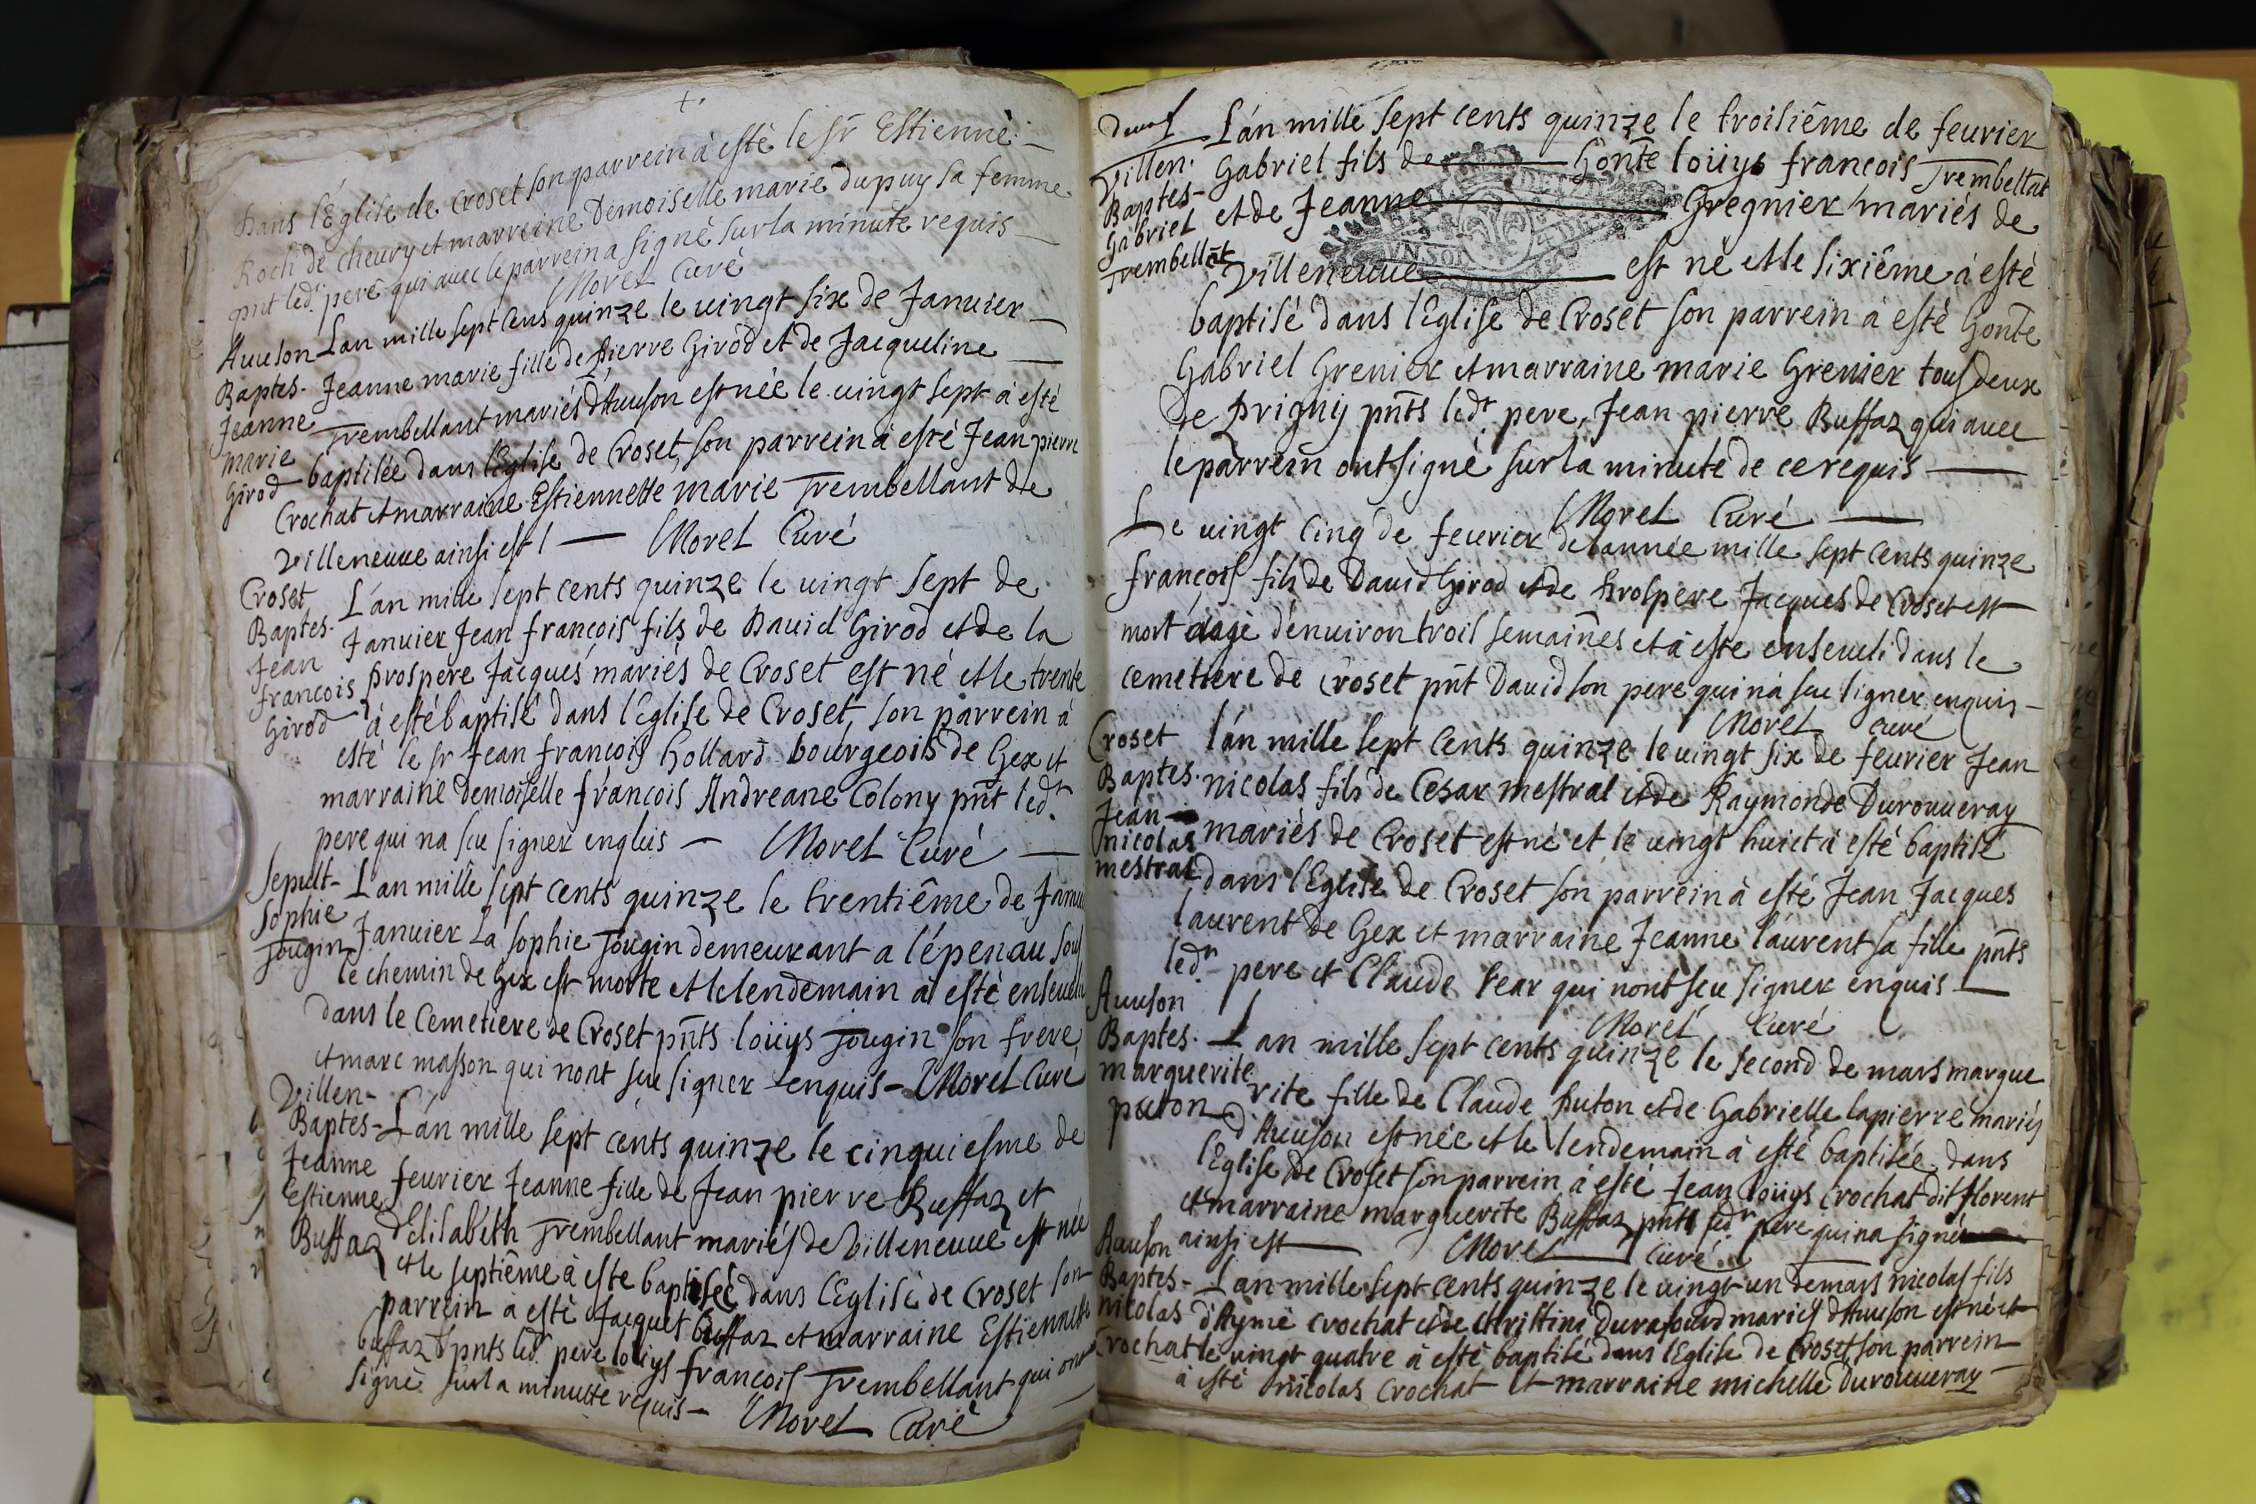 +.
dans l'Eglise de Croset son parrein à esté le sr Estienne
Roch de cheury et marreine Demoiselle marie dupuy sa femme
pnt led. pere qui auec le parrein a signé sur la minute requis
Morel Curé
Auuson Lan mille sept cens quinze le uingt six de Januier
Baptes. Jeanne marie fille de pierre Girod et de Jacqueline
Jeanne Trembellant mariés d'Auuson est née le uingt sept à esté
marie baptisée dans l'Eglise de Croset, son parrein à esté Jean pierre
Girod Crochat et marraine Estiennette marie Trembellant de
Villeneuue ainsi est Morel Curé
Croset L'an mille sept cents quinze le uingt sept de
Baptes. Januier Jean françois fils de Dauid Girod et de la
Jean prospere Jacques mariés de Croset est né et le trente
francois à esté baptisé dans l'Eglise de Croset, son parrein à
Girod esté le sr Jean françois hollard bourgeois de Gex et
marraine demoiselle françois Andreane Colony pnt ledt
pere qui na sceu signer enquis Morel Curé
Sepult- Lan mille sept cents quinze le trentiême de
Sophie Januier La sophie Jougin demeurant a l'épenau sous
Jougin le chemin de Gex est morte et le lendemain à esté enseueli
dans le Cemetiere de Croset pnts loüys Jougin son frere
et marc masson qui nont sceu signer enquis - Morel Curé
Villen-
Baptes- L'an mille sept cents quinze le cinquiesme de
Jeanne feurier Jeanne fille de Jean pierre Buffaz et
Estienne d'Elisabeth Trembellant mariés de Villeneuue est née
Buffaz et le septiême à este baptisée dans l'Eglise de Croset son
parrein a esté Jacquet buffaz et marraine Estiennette
buffaz pnts led. pere loüys françois Trembellant qui ont
signé sur la minute requis - Morel Curé
L'an mille sept cents quinze le troisiême de feurier
Villen. Gabriel fils de honte loüys francois Trembellat
Baptes- et de Jeanne Gregnier mariés de
Gabriel
Trembellat Villeneuue est né et le sixiême à esté
baptisé dans l'Eglise de Croset son parrein à esté honte
Gabriel Grenier et marraine marie Grenier tous deux
de prigny pnts ledt. pere, Jean pierre Buffaz qui auec
le parrein ont signé sur la minute de ce requis
Morel Curé
Le uingt cinq de feurier de lannée mille sept cents quinze
françois fils de Dauid Girod et de prospere Jacques de Croset est
mort âagé d'enuiron trois semaines et à este enseueli dans le
cemetiere de Croset pnt Dauid son pere qui nà sceu signer enquis
Morel Curé
Croset l'an mille sept cents quinze le uingt six de feurier Jean
Baptes. nicolas fils de Cesar mestral et de Raymonde Durouueray
Jean mariés de Croset est né et le uingt huict à esté baptisé
nicolas
mestral dans l'Eglise de Croset son parrein à esté Jean Jacques
laurent de Gex et marraine Jeanne laurent sa fille pnts
led. pere et Claude fear qui nont sceu signer enquis
Auuson Morel Curé
Baptes. Lan mille sept cents quinze le second de mars margue
marguerite rite fille de Claude puton et de Gabrielle lapierre mariés
puton d'Auuson est née et le lendemain à esté baptisée dans
l'Eglise de Croset son parrein à esté Jean loüys Crochat dit florent
et marraine marguerite Buffaz pnts led. pere qui na signé
Auuson ainsi est Morel Curé
Baptes- Lan mille sept cents quinze le uingt un de mars nicolas fils
nicolas d'Aymé Crochat et de Christine durafourd mariés d'Auuson est né et
Crochat le uingt quatre à esté baptisé dans l'Eglise de Croset son parrein
à esté nicolas Crochat et marraine michelle Durouueray